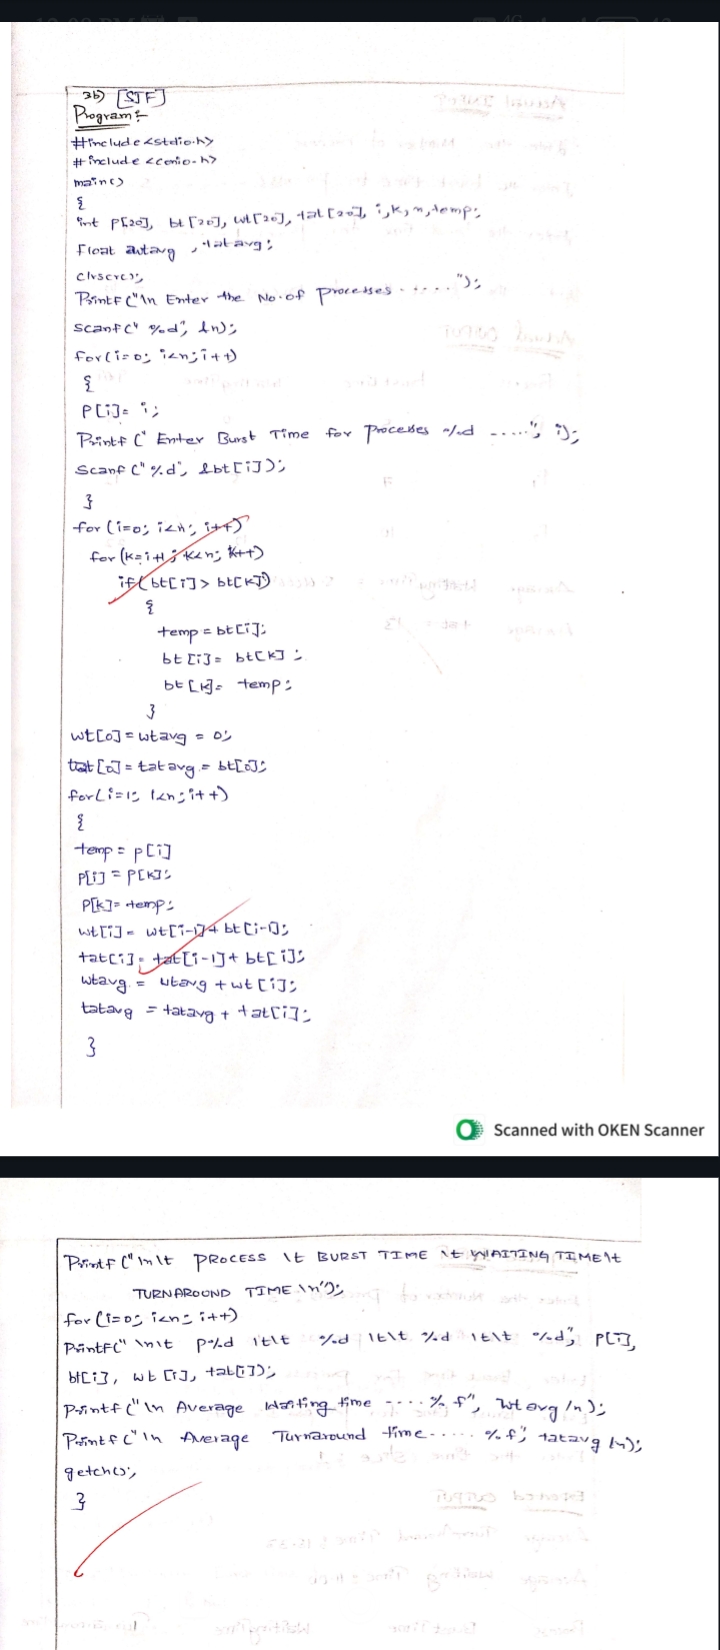 3b) [SJF]
Program:-
#include<stdio.h>
#include<conio.h>
main()
{
int p[20], bt[20], wt[20], tat[20], i, k, n, temp;
float wtavg, tatavg;
clrscr();
Printf("\n Enter the No. of processes ......");
Scanf("%d", &n);
for(i=0; i<n; i++)
{
P[i]= i;
Printf(" Enter Burst Time for processes %d .....", i);
Scanf("%d", &bt[i]);
}
for(i=0; i<n; i++)
for(k=i+1; k<n; k++)
if(bt[i]>bt[k])
{
temp = bt[i];
bt[i]= bt[k];
bt[k]= temp;
}
wt[0]=wtavg = 0;
tat[0]=tatavg = bt[0];
for(i=1; i<n; i++)
{
temp = p[i]
P[i] = P[k];
P[k]= temp;
wt[i]= wt[i-1]+ bt[i-1];
tat[i]= tat[i-1]+ bt[i];
wtavg = wtavg + wt[i];
tatavg = tatavg + tat[i];
}
Scanned with OKEN Scanner
Printf("\n\t PROCESS \t BURST TIME \t WAITING TIME\t
TURNAROUND TIME \n");
for(i=0; i<n; i++)
Printf("\n\t p%d \t\t %d \t\t %d \t\t %d", p[i],
bt[i], wt[i], tat[i]);
Printf("\n Average Waiting time ....%f", wtavg/n);
Printf("\n Average Turnaround time..... %f", tatavg/n);
getch();
}